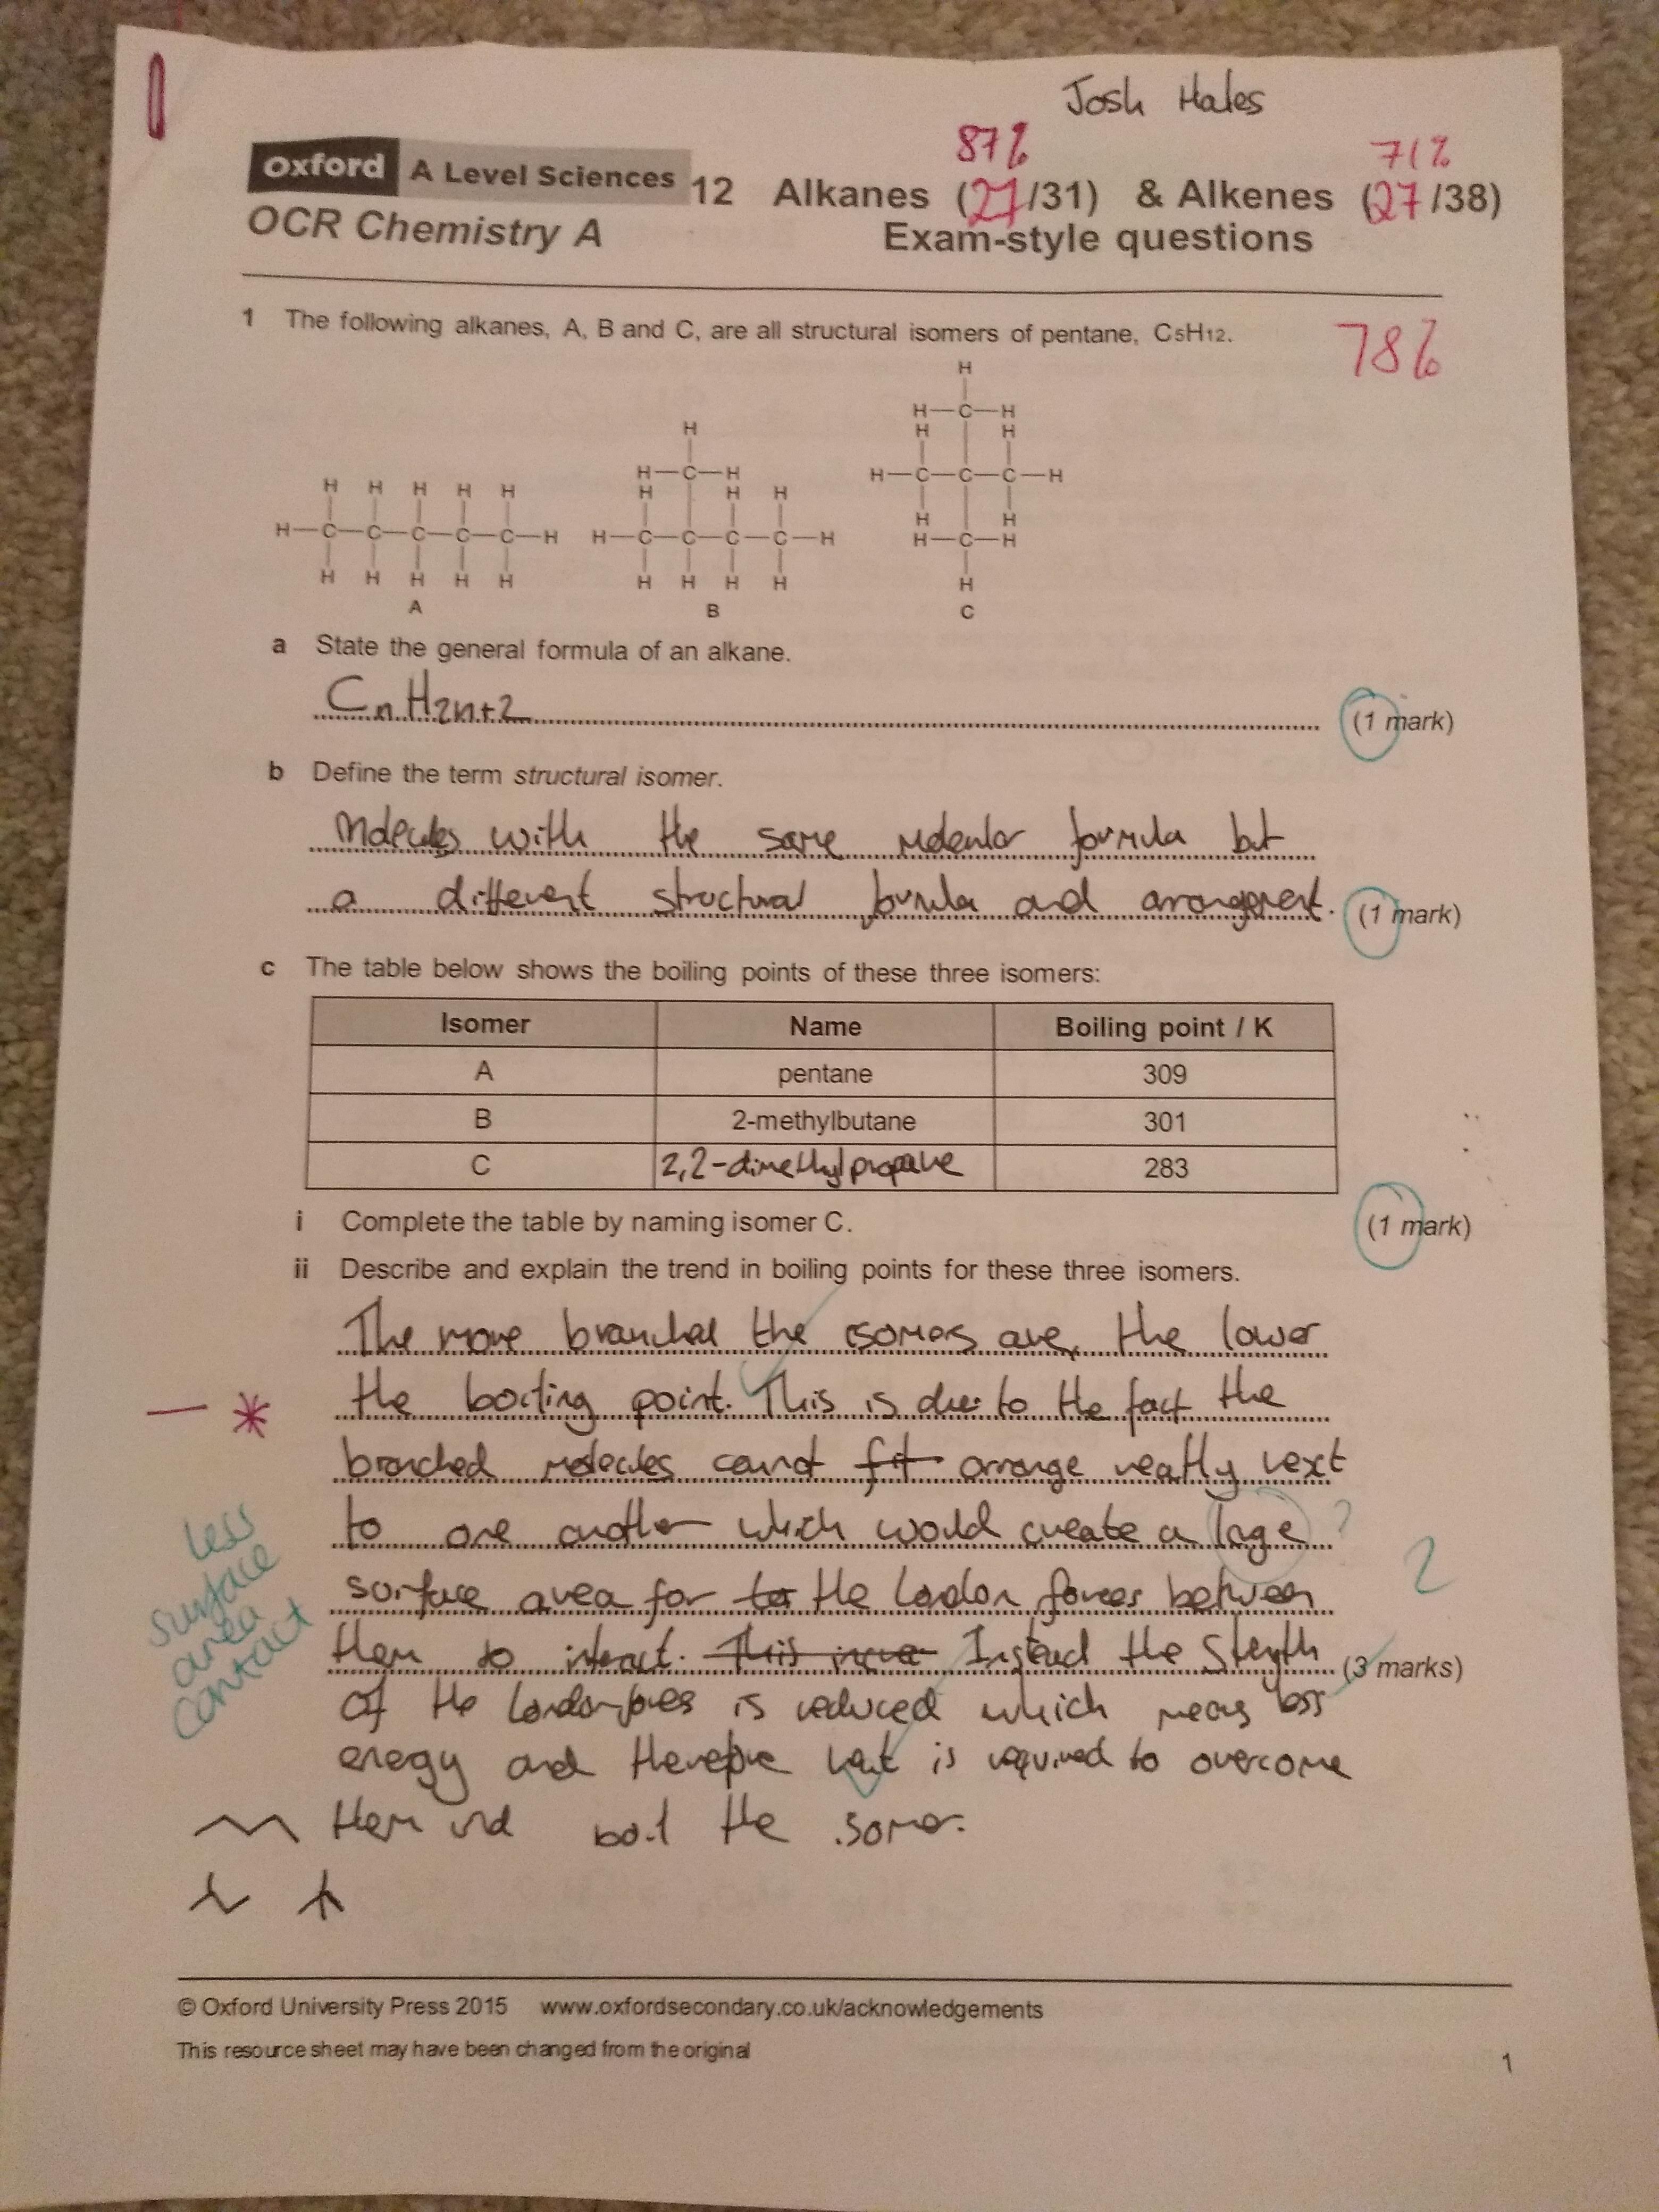 Josh Hales
87% 71%
Oxford A Level Sciences 12 Alkanes (27/31) & Alkenes (27/38)
OCR Chemistry A Exam-style questions
1 The following alkanes, A, B and C, are all structural isomers of pentane, C5H12.
78%
H
H—C—H
H H
H—C—C—C—H
H H
H—C—H
H
C
H
H—C—H
H H H
H—C—C—C—C—H
H H H H
B
H H H H H
H—C—C—C—C—C—H
H H H H H
A
a State the general formula of an alkane.
CnH2n+2 (1 mark)
b Define the term structural isomer.
Molecules with the same molecular formula but
a different structural formula and arrangement. (1 mark)
c The table below shows the boiling points of these three isomers:
Isomer Name Boiling point / K
A pentane 309
B 2-methylbutane 301
C 2,2-dimethylpropane 283
i Complete the table by naming isomer C. (1 mark)
ii Describe and explain the trend in boiling points for these three isomers.
The more branched the isomers are, the lower
the boiling point. This is due to the fact the
branched molecules cannot fit arrange neatly next
to one another which would create a large ?
surface area for to the London forces between
them to interact. This incre Instead the strength (3 marks)
of the London forces is reduced which means less
energy and therefore heat is required to overcome
them and boil the isomer.
less
surface
area
contact
2
© Oxford University Press 2015 www.oxfordsecondary.co.uk/acknowledgements
This resource sheet may have been changed from the original
1